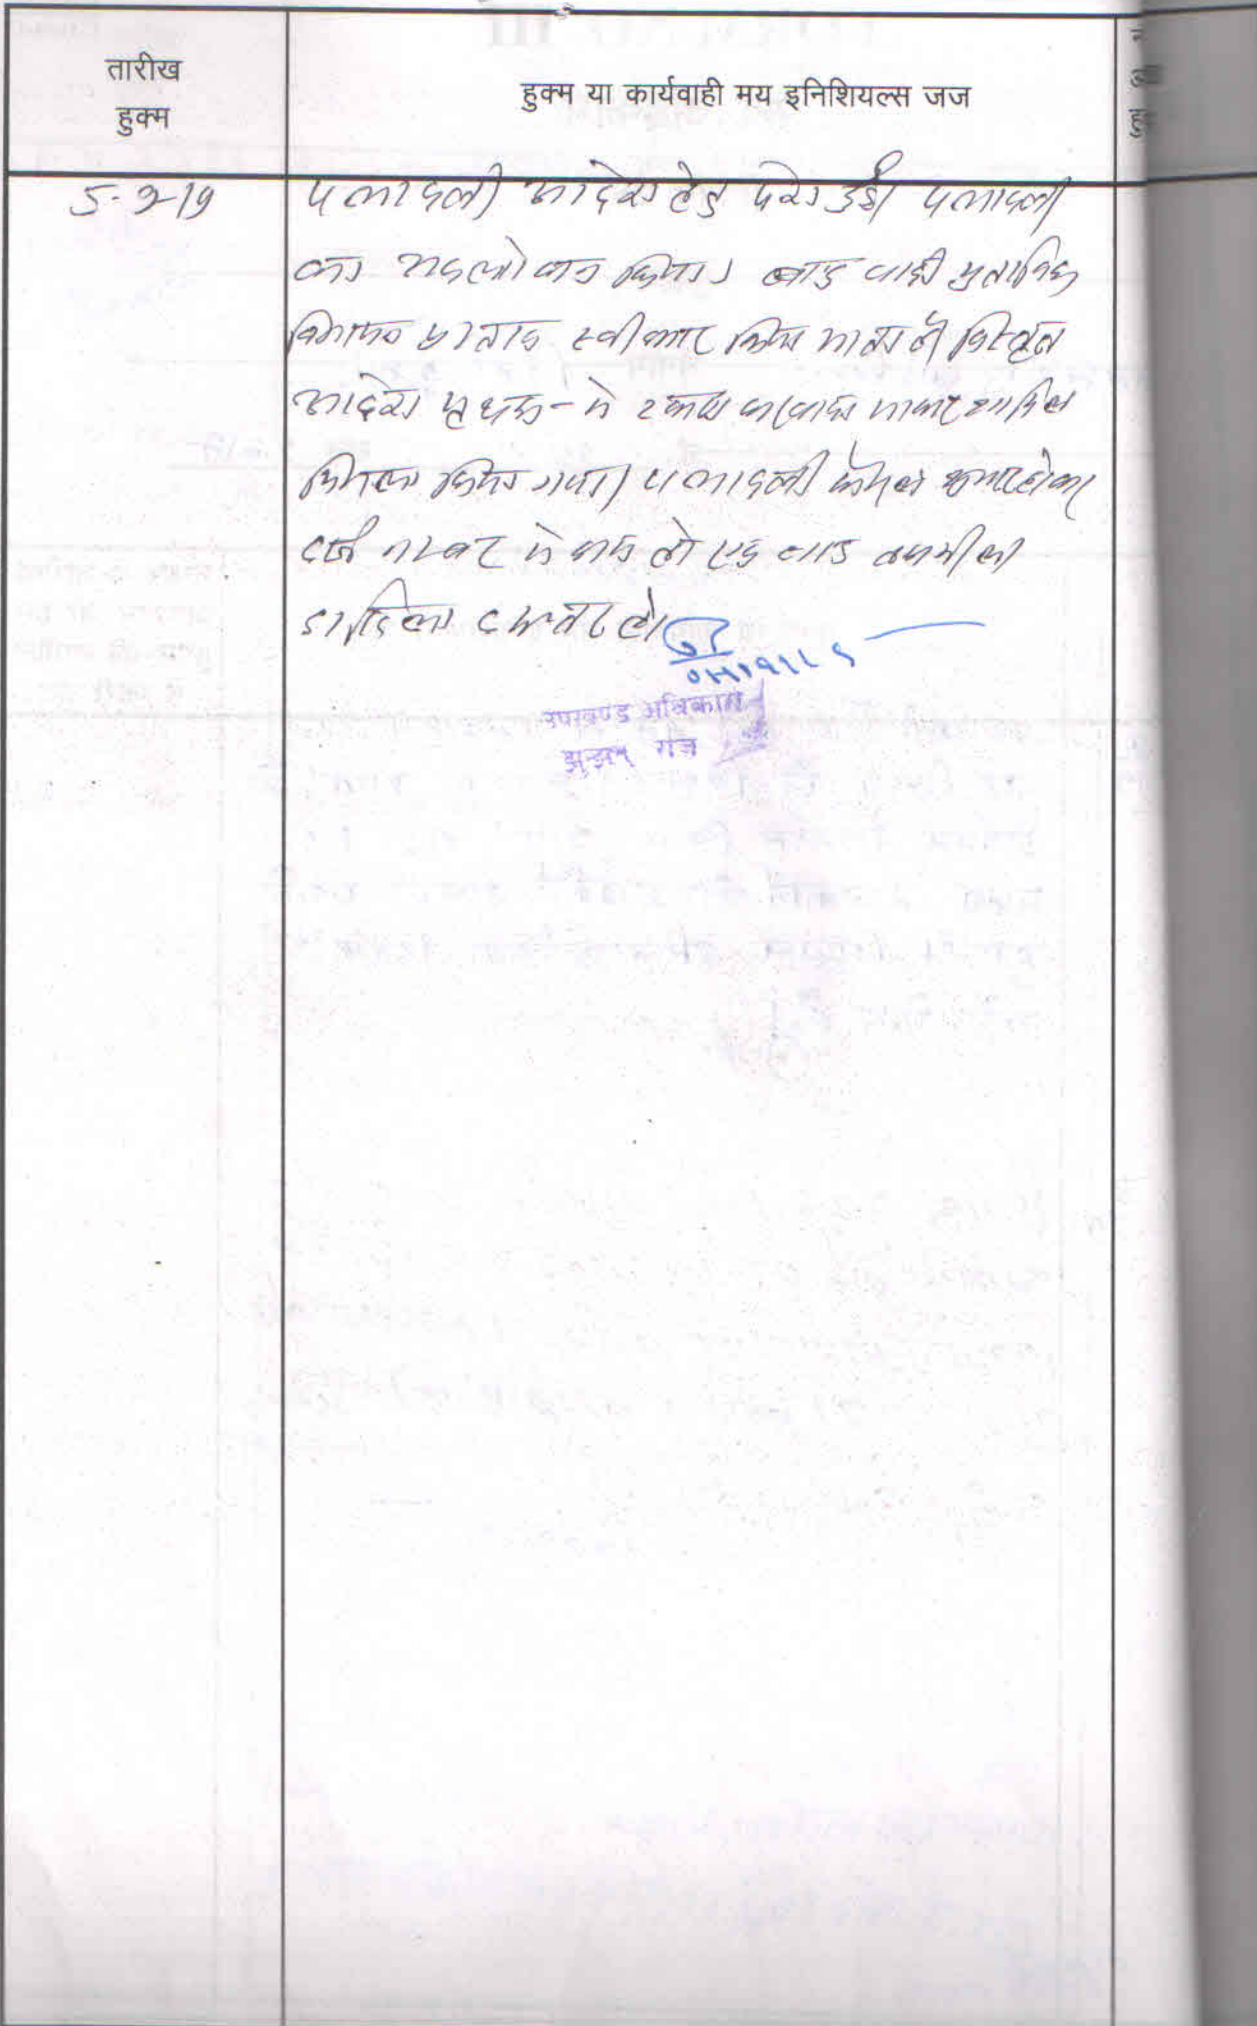 तारीख
हुक्म
हुक्म या कार्यवाही मय इनिशियल्स जज
5-9-19
पत्रावली आदेश हेतु पेश हुई। पत्रावली
का अवलोकन किया। वाद वादी मुताबिक
विभाजन प्रस्ताव स्वीकार किया जाता है विस्तृत
आदेश पृथक से लिखा जाकर शामिल
मिसल किया गया। पत्रावली फैसल शुमार होकर
दर्ज नम्बर से कम हो एवं बाद तकमील
दाखिल दफ्तर हो।
उपखण्ड अधिकारी